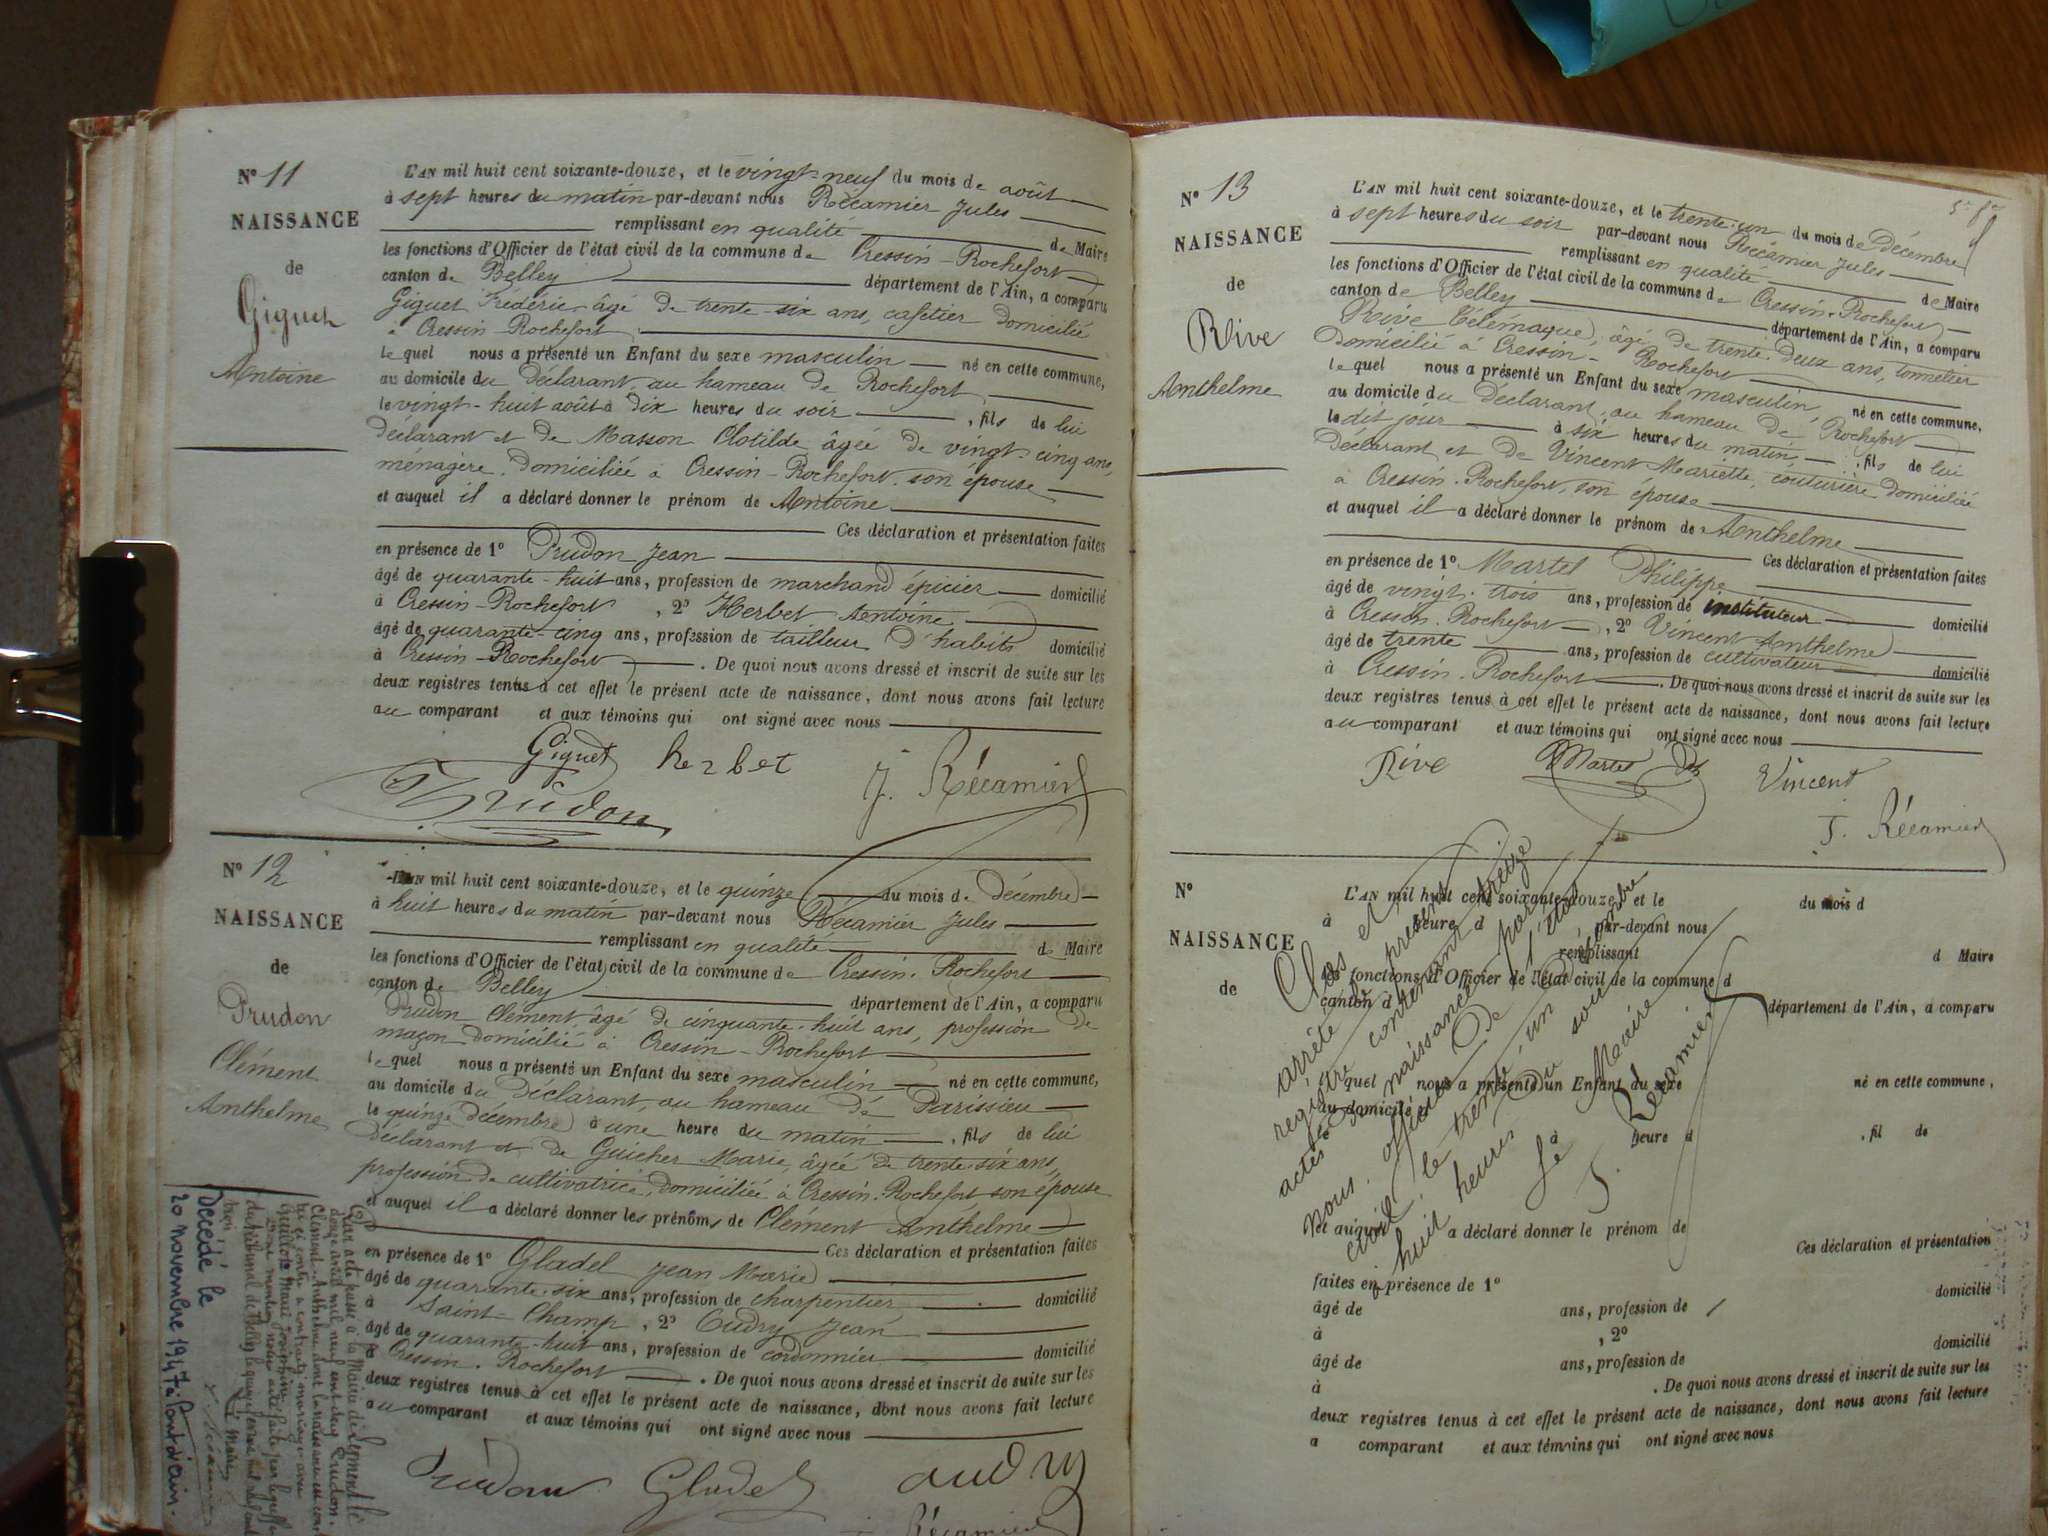 N° 11
NAISSANCE
de
Giguet
Antoine
L'AN mil huit cent soixante-douze, et le vingt-neuf du mois de août
à sept heures du matin par-devant nous Récamier Jules
remplissant en qualité de Maire
les fonctions d'Officier de l'état civil de la commune de Cressin-Rochefort
canton de Belley département de l'Ain, a comparu
Giguet Frédéric âgé de trente-six ans, cafetier domicilié
à Cressin-Rochefort
lequel nous a présenté un Enfant du sexe masculin né en cette commune,
au domicile du déclarant, au hameau de Rochefort
le vingt-huit août à dix heures du soir, fils de lui
déclarant et de Masson Clotilde âgée de vingt-cinq ans,
ménagère, domiciliée à Cressin-Rochefort, son épouse
et auquel il a déclaré donner le prénom de Antoine
Ces déclaration et présentation faites
en présence de 1° Prudon Jean
âgé de quarante-huit ans, profession de marchand épicier domicilié
à Cressin-Rochefort, 2° Herbet Antoine
âgé de quarante-cinq ans, profession de tailleur d'habits domicilié
à Cressin-Rochefort. De quoi nous avons dressé et inscrit de suite sur les
deux registres tenus à cet effet le présent acte de naissance, dont nous avons fait lecture
au comparant et aux témoins qui ont signé avec nous
Giguet herbet J. Récamier
Prudon
N° 12
NAISSANCE
de
Prudon
Clément
Anthelme
L'AN mil huit cent soixante-douze, et le quinze du mois de décembre
à huit heures du matin par-devant nous Récamier Jules
remplissant en qualité de Maire
les fonctions d'Officier de l'état civil de la commune de Cressin-Rochefort
canton de Belley département de l'Ain, a comparu
Prudon Clément âgé de cinquante-huit ans, profession de
maçon domicilié à Cressin-Rochefort
lequel nous a présenté un Enfant du sexe masculin né en cette commune,
au domicile du déclarant, au hameau de Parissieu
le quinze décembre à une heure du matin, fils de lui
déclarant et de Guicher Marie, âgée de trente-six ans,
profession de cultivatrice, domiciliée à Cressin-Rochefort son épouse
et auquel il a déclaré donner les prénoms de Clément Anthelme
Ces déclaration et présentation faites
en présence de 1° Gladel Jean Marie
âgé de quarante-six ans, profession de charpentier domicilié
à Saint-Champ, 2° Oudry Jean
âgé de quarante-huit ans, profession de cordonnier domicilié
à Cressin-Rochefort. De quoi nous avons dressé et inscrit de suite sur les
deux registres tenus à cet effet le présent acte de naissance, dont nous avons fait lecture
au comparant et aux témoins qui ont signé avec nous
Prudon Gladel audry
Récamier
Par acte passé à la Mairie de le
douze avril mil neuf cent Prudon
Clément Anthelme dont la naissance est
ci contre a contracté mariage avec
Marie Joséphine
Le Maire,
Décédé le
20 novembre 1947 à Pont d'ain.
N° 13
NAISSANCE
de
Rive
Anthelme
L'AN mil huit cent soixante-douze, et le trente-un du mois de décembre
à sept heures du soir par-devant nous Récamier Jules
remplissant en qualité de Maire
les fonctions d'Officier de l'état civil de la commune de Cressin-Rochefort
canton de Belley département de l'Ain, a comparu
Rive Télémaque, âgé de trente-deux ans, tonnelier
domicilié à Cressin-Rochefort
lequel nous a présenté un Enfant du sexe masculin né en cette commune,
au domicile du déclarant, au hameau de Rochefort
le dit jour à six heures du matin, fils de lui
déclarant et de Vincent Mariette, couturière domiciliée
à Cressin-Rochefort, son épouse
et auquel il a déclaré donner le prénom de Anthelme
Ces déclaration et présentation faites
en présence de 1° Martel Philippe
âgé de vingt-trois ans, profession de instituteur domicilié
à Cressin-Rochefort, 2° Vincent Anthelme
âgé de trente ans, profession de cultivateur domicilié
à Cressin-Rochefort. De quoi nous avons dressé et inscrit de suite sur les
deux registres tenus à cet effet le présent acte de naissance, dont nous avons fait lecture
au comparant et aux témoins qui ont signé avec nous
Rive Martel Vincent
J. Récamier
N°
NAISSANCE
de
L'AN mil huit cent soixante-douze, et le du mois d
à heure d par-devant nous
remplissant d Maire
les fonctions d'Officier de l'état civil de la commune d
canton d département de l'Ain, a comparu
lequel nous a présenté un Enfant du sexe né en cette commune,
au domicile d
le à heure d, fil de
et auquel a déclaré donner le prénom de
Ces déclaration et présentation
faites en présence de 1°
âgé de ans, profession de domicilié
à , 2°
âgé de ans, profession de domicilié
à . De quoi nous avons dressé et inscrit de suite sur les
deux registres tenus à cet effet le présent acte de naissance, dont nous avons fait lecture
a comparant et aux témoins qui ont signé avec nous
Clos et
arrêté le présent
registre contenant treize
actes de naissance par
nous, officier de l'état
civil, le trente un décembre
à huit heures du soir
Le Maire
J. Récamier